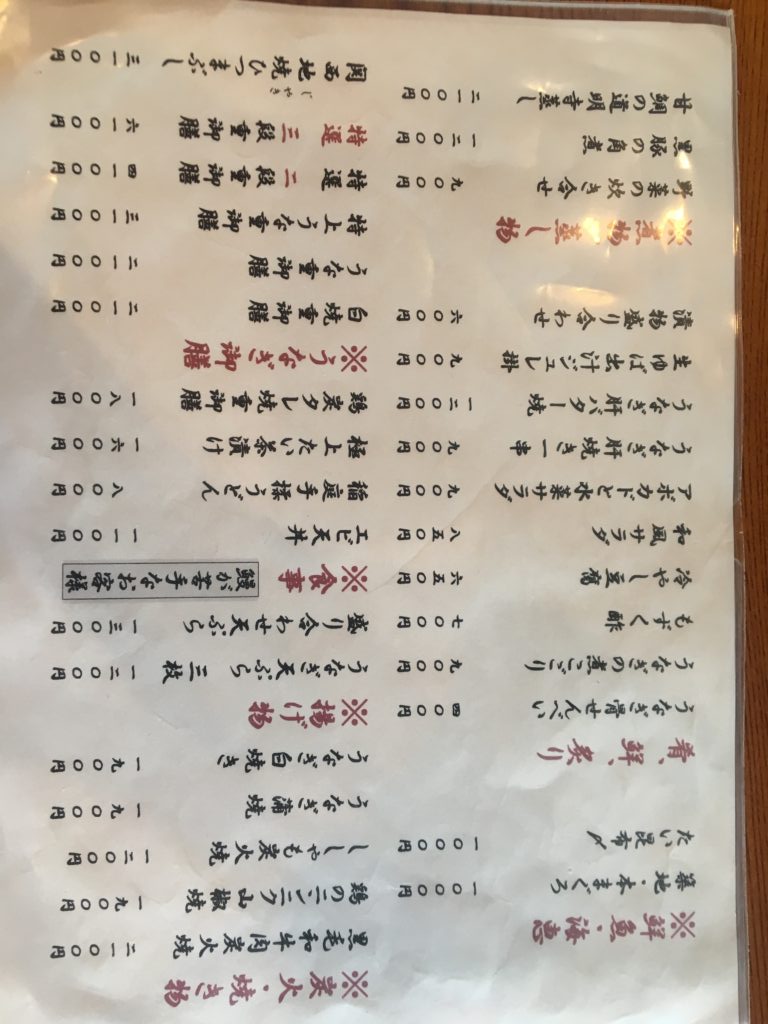 ※鮮魚・海恵
築地・本まぐろ 一〇〇〇円
たい昆布〆 一〇〇〇円
肴、鮮、炙り
うなぎ骨せんべい 四〇〇円
うなぎの煮こごり 九〇〇円
もずく酢 七〇〇円
冷やし豆腐 六五〇円
和風サラダ 八五〇円
アボカドと水菜サラダ 九〇〇円
うなぎ肝焼き一串 九〇〇円
うなぎ肝バター焼 一二〇〇円
生ゆば出汁ジュレ掛 九〇〇円
漬物盛り合わせ 六〇〇円
※煮物・蒸し物
野菜の炊き合せ 九〇〇円
黒豚の角煮 一二〇〇円
甘鯛の道明寺蒸し 二一〇〇円
※炭火・焼き物
黒毛和牛肉炭火焼 二一〇〇円
鶏のニンニク山椒焼 一九〇〇円
ししゃも炭火焼 一二〇〇円
うなぎ蒲焼 一九〇〇円
うなぎ白焼き 一九〇〇円
※揚げ物
うなぎ天ぷら 三枚 一二〇〇円
盛り合わせ天ぷら 一三〇〇円
※食事 鰻が苦手なお客様
エビ天丼 一一〇〇円
稲庭手揉うどん 八〇〇円
極上たい茶漬け 一六〇〇円
鶏炭タレ焼重御膳 一八〇〇円
※うなぎ御膳
白焼重御膳 二一〇〇円
うな重御膳 二一〇〇円
特上うな重御膳 三一〇〇円
特選 二段重御膳 四一〇〇円
特選 三段重御膳 六一〇〇円
関西地焼ひつまぶし 三一〇〇円
じやき